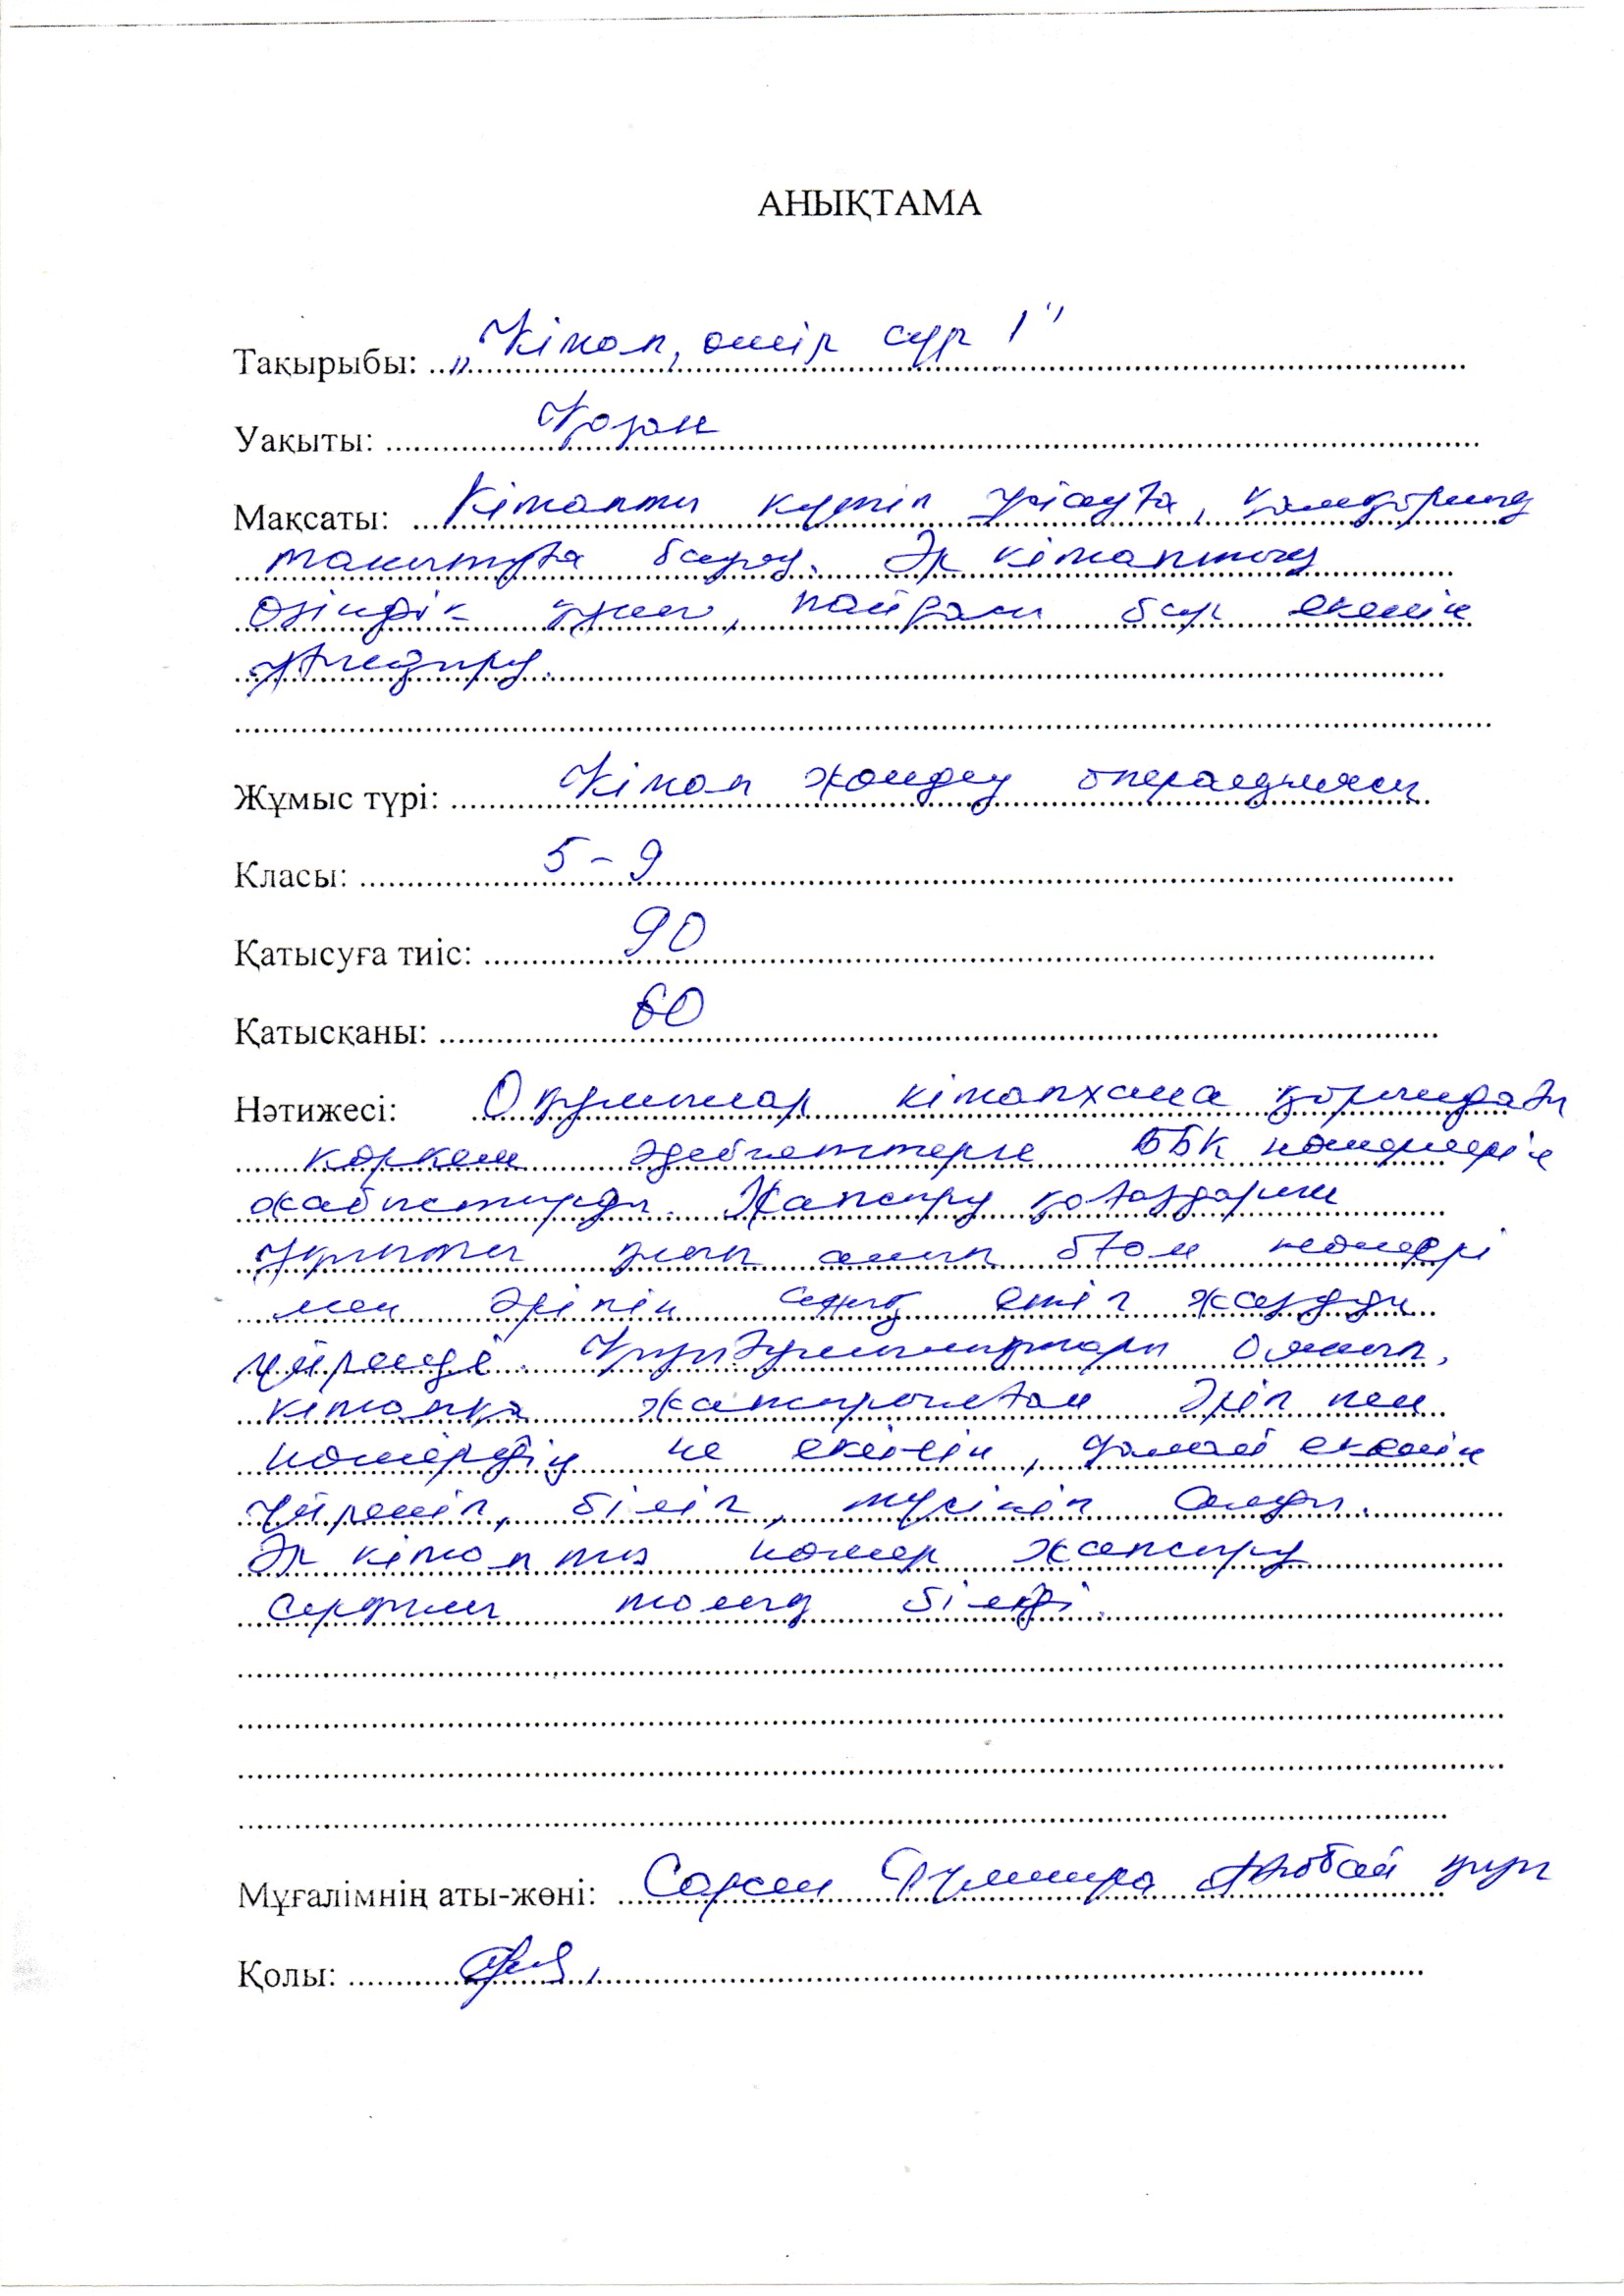 АНЫҚТАМА
Тақырыбы: „Кітап, өмір сүр!"
Уақыты: Қазан
Мақсаты: Кітапты күтіп ұстауға, қамқорлық
танытуға баулу. Әр кітаптың
өзіндік үні, пайдасы бар екенін
ұғындыру.
Жұмыс түрі: Кітап жөндеу операциясы
Класы: 5-9
Қатысуға тиіс: 90
Қатысқаны: 60
Нәтижесі: Оқушылар кітапхана қорындағы
көркем әдебиеттерге ББК нөмерлерін
жабыстырды. Жапсыру қағаздарын
қиып алып оған нөмері
мен әріпін сәнді етіп жазуды
үйренді. Қызығушылықтары оянып,
кітапқа жапсырылатын әріп пен
нөмердің не екенін, қандай екенін
үйреніп, біліп, түсініп алды.
Әр кітапта нөмер жапсыру
сырын толық білді.
Мұғалімнің аты-жөні: Сәрсен Гүлмира қызы
Қолы: